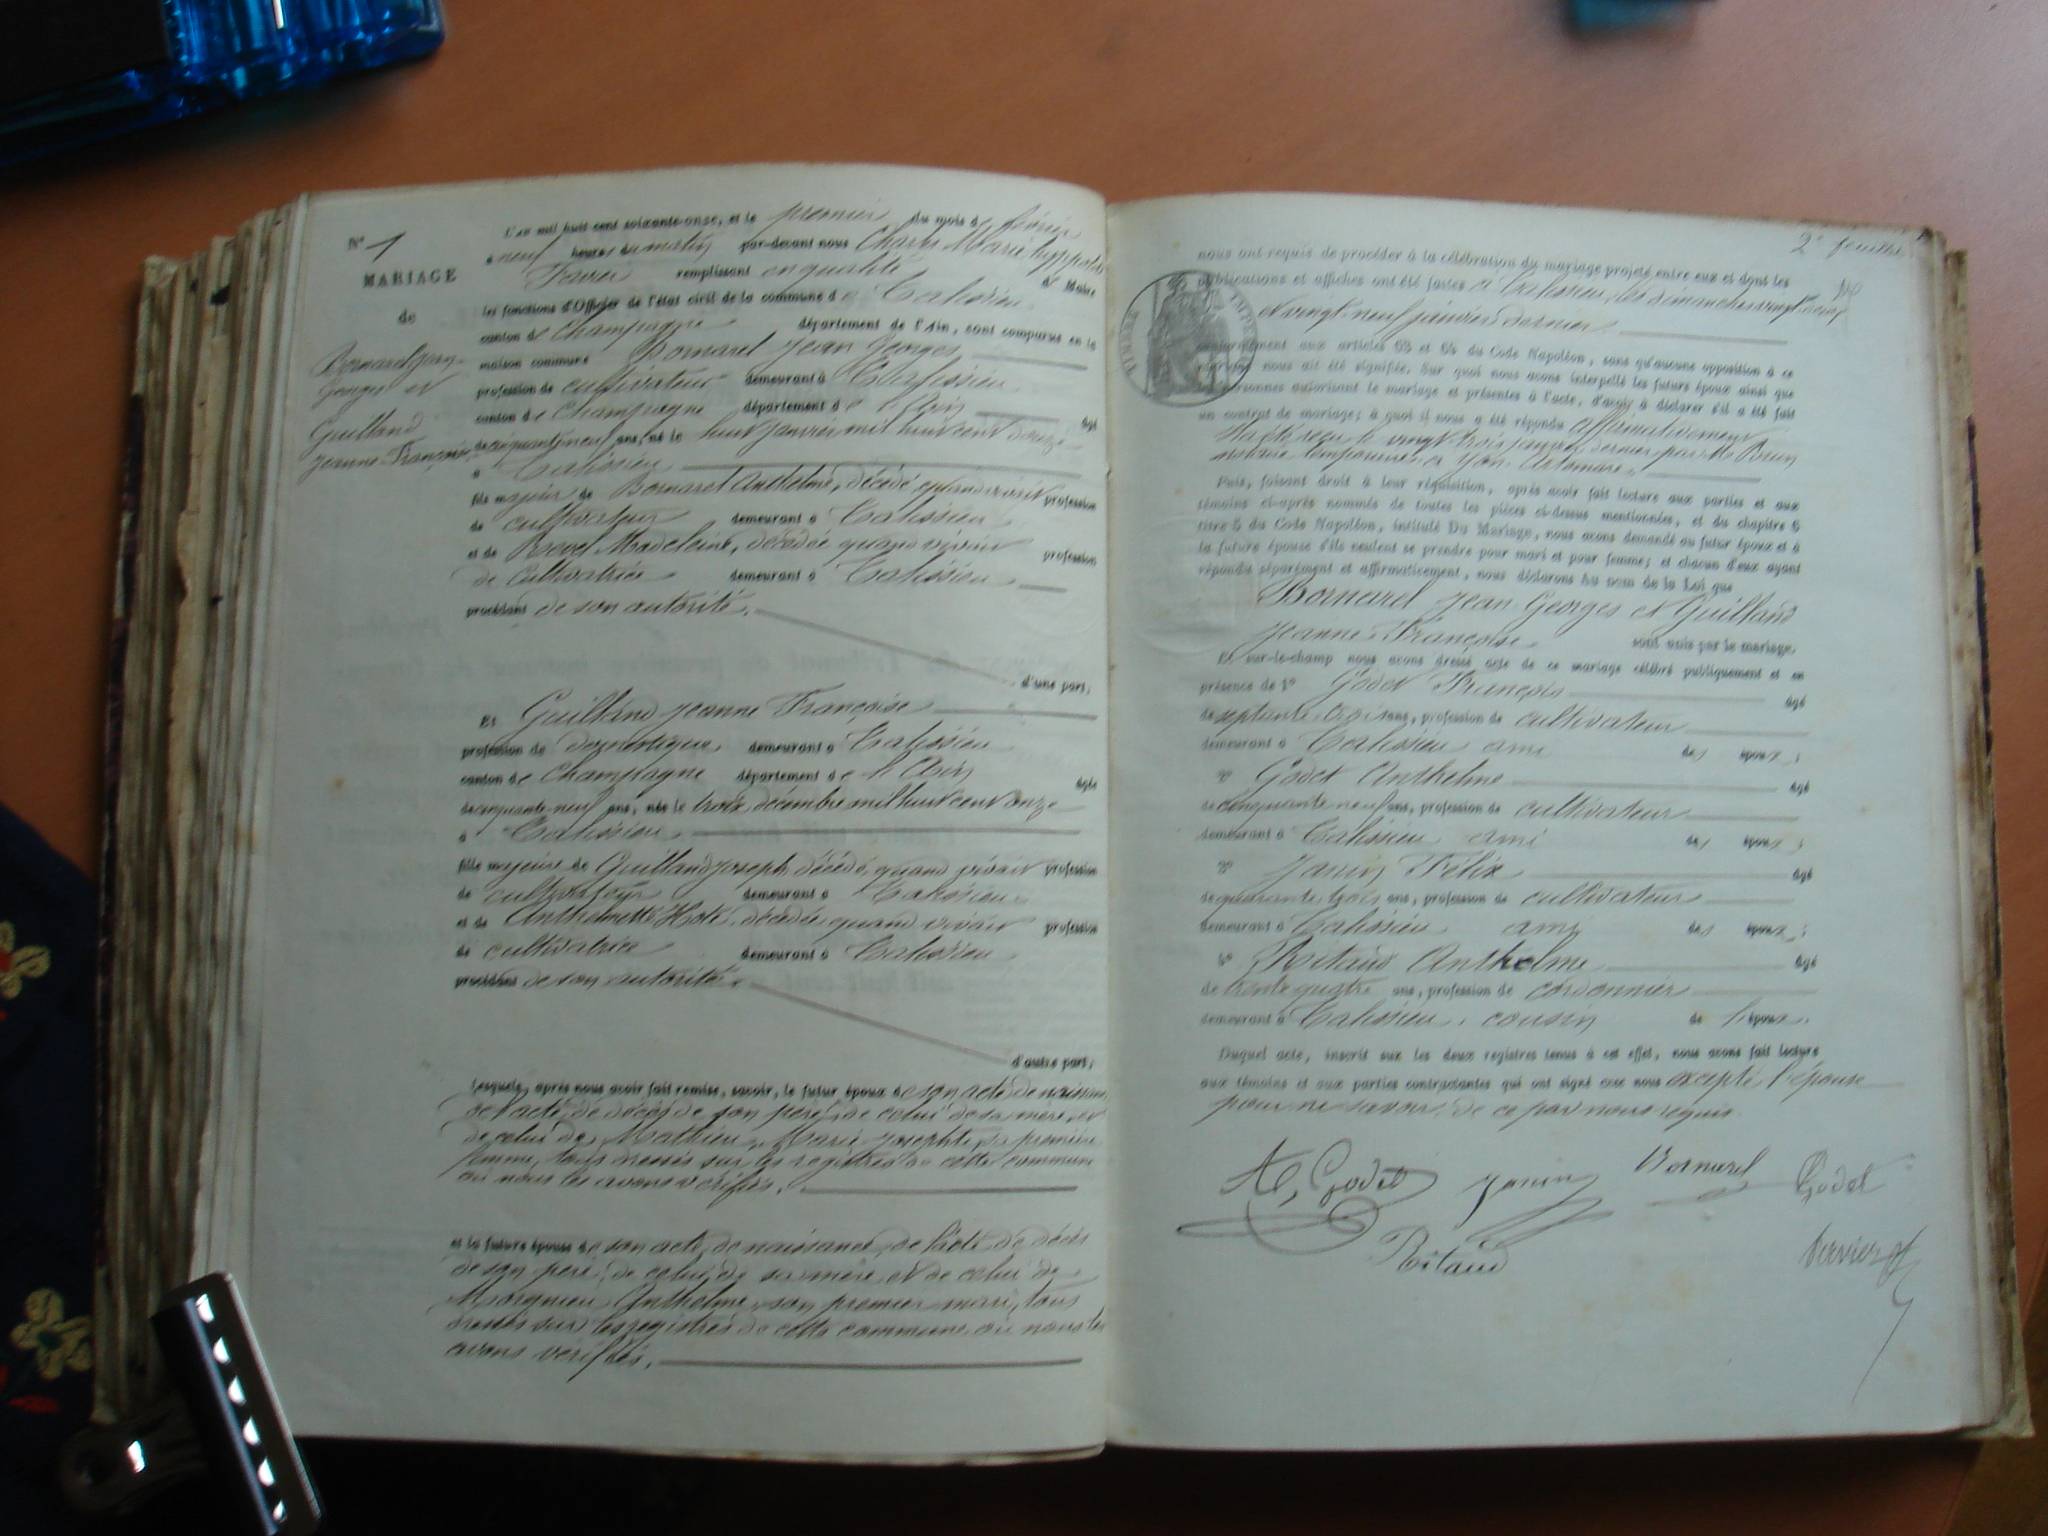 N° 1
MARIAGE
de
Bornarel Jean
Georges et
Guilland
Jeanne Françoise
L'an mil huit cent soixante-onze, et le premier du mois d
à neuf heures du matin par-devant nous Charles Marie hyppolite
remplissant en qualité de Maire
les fonctions d'Officier de l'état civil de la commune de Talissieu
canton de Champagne département de l'Ain, sont comparus en la
maison commune Bornarel Jean Georges
profession de cultivateur demeurant à Talissieu
canton de Champagne département de l'Ain âgé
de cinquante neuf ans, né le huit janvier mil huit cent douze
à Talissieu
fils majeur de Bornarel Anthelme, décédé quand vivait profession
de cultivateur demeurant à Talissieu
et de Revel Madeleine, décédée quand vivait profession
de cultivatrice demeurant à Talissieu
procédant de son autorité.
d'une part,
Et Guilland Jeanne Françoise
profession de domestique demeurant à Talissieu
canton de Champagne département de l'Ain âgée
de cinquante-neuf ans, née le trois décembre mil huit cent onze
à Talissieu
fille majeure de Guilland Joseph, décédé, quand vivait profession
de cultivateur demeurant à Talissieu
et de Anthelmette décédée quand vivait profession
de cultivatrice demeurant à Talissieu
procédant de son autorité.
d'autre part,
Lesquels, après nous avoir fait remise, savoir, le futur époux de son acte de naissance
de l'acte de décès de son père, de celui de sa mère, et
de celui de Mathieu Marie Josephte, sa première
femme, tous dressés sur les registres de cette commune
où nous les avons vérifiés.
et la future épouse de son acte de naissance, de l'acte de décès
de son père, de celui de sa mère et de celui de
Anthelme, son premier mari, tous
dressés sur les registres de cette commune où nous les
avons vérifiés.
2e feuillet
nous ont requis de procéder à la célébration du mariage projeté entre eux et dont les
publications et affiches ont été faites à Talissieu, les dimanches vingt deux
et vingt neuf janvier dernier
conformément aux articles 63 et 64 du Code Napoléon, sans qu'aucune opposition à ce
mariage nous ait été signifiée. Sur quoi nous avons interpellé les futurs époux ainsi que
les personnes autorisant le mariage et présentes à l'acte, d'avoir à déclarer s'il a été fait
un contrat de mariage; à quoi il nous a été répondu affirmativement
reçu le vingt trois janvier dernier par Me Brun
notaire à
Puis, faisant droit à leur réquisition, après avoir fait lecture aux parties et aux
témoins ci-après nommés de toutes les pièces ci-dessus mentionnées, et du chapitre 6
titre 5 du Code Napoléon, intitulé Du Mariage, nous avons demandé au futur époux et à
la future épouse s'ils veulent se prendre pour mari et pour femme; et chacun d'eux ayant
répondu séparément et affirmativement, nous déclarons au nom de la Loi que
Bornarel Jean Georges et Guilland
Jeanne Françoise sont unis par le mariage.
Et sur-le-champ nous avons dressé acte de ce mariage célébré publiquement et en
présence de 1° Godet François âgé
de septante trois ans, profession de cultivateur
demeurant à Talissieu ami des époux;
2° Godet Anthelme âgé
de cinquante neuf ans, profession de cultivateur
demeurant à Talissieu ami des époux;
3° Janin Félix âgé
de quarante trois ans, profession de cultivateur
demeurant à Talissieu ami des époux;
4° Ritaud Anthelme âgé
de trente quatre ans, profession de cordonnier
demeurant à Talissieu, cousin de l'époux.
Duquel acte, inscrit sur les deux registres tenus à cet effet, nous avons fait lecture
aux témoins et aux parties contractantes qui ont signé avec nous excepté l'épouse
pour ne savoir, de ce par nous requis.
At, Godet Janin Bornarel Godet
Ritaud